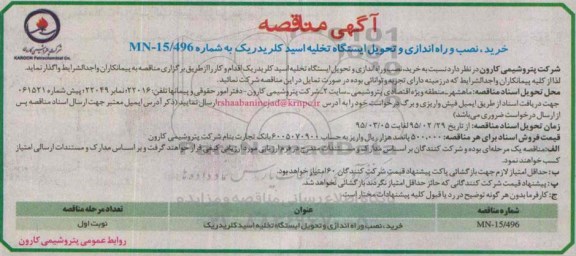 آگهی مناقصه
خرید، نصب و راه اندازی و تحویل ایستگاه تخلیه اسید کلریدریک به شماره MN-15/496
شرکت پتروشیمی کارون
KAROON Petrochemical Co.
شرکت پتروشیمی کارون در نظر دارد نسبت به خرید، نصب و راه اندازی و تحویل ایستگاه تخلیه اسید کلریدریک اقدام و کار را از طریق برگزاری مناقصه به پیمانکاران واجدالشرایط واگذار نماید.
لذا از کلیه پیمانکاران واجدالشرایط که در زمینه دارای تجربه و توانائی بوده در صورت تمایل در این مناقصه شرکت نمائید.
محل تحویل اسناد مناقصه: ماهشهر، منطقه ویژه اقتصادی پتروشیمی، سایت ۲، شرکت پتروشیمی کارون - دفتر امور حقوقی و پیمانها تلفن: ۲۲۰۱۶ نمابر ۲۲۰۴۹ شماره ۰۶۱۵۲۱
جهت دریافت اسناد از طریق ایمیل فیش واریزی و برگ درخواست خود را به آدرس r.shaabaninejad@krnpc.ir ارسال نمایید. (ذکر آدرس ایمیل معتبر جهت ارسال اسناد مناقصه پس
از ارسال درخواست ضروری می باشد)
زمان تحویل اسناد مناقصه: از تاریخ ۹۵/۰۲/۲۹ لغایت ۹۵/۰۳/۰۵
قیمت فروش اسناد برای هر مناقصه: ۵۰۰,۰۰۰ پانصد هزار ریال واریز به حساب ۶۰۰۵۰۷۰۹۰۰ بانک تجارت بنام شرکت پتروشیمی کارون
الف: مناقصه یک مرحله ای بوده و شرکت کنندگان بر اساس فرم ارزیابی مورد ارزیابی کیفی قرار خواهند گرفت و بر اساس مدارک و مستندات ارسالی امتیاز
کسب خواهند نمود.
ب: حداقل امتیاز لازم جهت بازگشائی پاکت پیشنهاد قیمت شرکت کنندگان ۶۰ امتیاز خواهد بود.
پ: پیشنهاد قیمت شرکت کنندگانی که حائز حداقل امتیاز نگردند بازگشائی نخواهد شد.
ج: کارفرما بدون هر گونه توضیح در رد یا قبول کلیه پیشنهادات مختار است.
شماره مناقصه عنوان تعداد مرحله مناقصه
MN-15/496 خرید، نصب و راه اندازی و تحویل ایستگاه تخلیه اسید کلریدریک نوبت اول
روابط عمومی پتروشیمی کارون